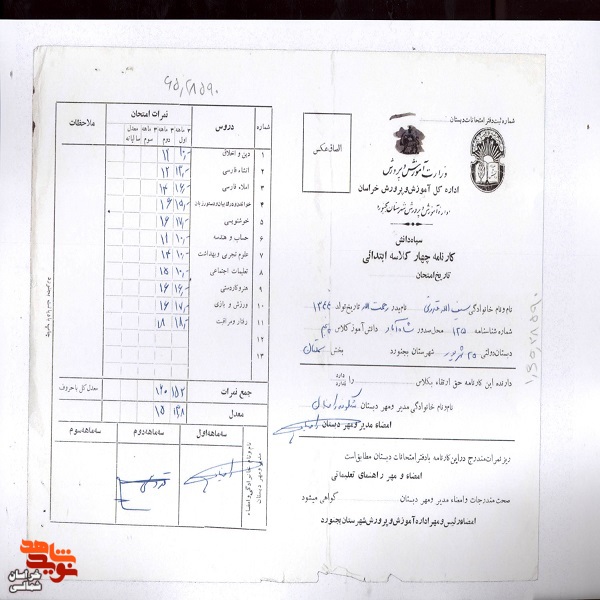 شماره ثبت دفتر امتحانات دبستان
وزارت آموزش و پرورش
اداره کل آموزش و پرورش خراسان
اداره آموزش و پرورش شهرستان بجنورد
الصاق عکس
سپاه دانش
کارنامه چهار کلاسه ابتدائی
تاریخ امتحان
نام و نام خانوادگی سیف الله نام پدر رحمت الله تاریخ تولد ۱۳۴۴
شماره شناسنامه ۱۲۵ محل صدور دانش آموز کلاس
دبستان دولتی ۲۵ شهریور شهرستان بجنورد بخش سملقان
دارنده این کارنامه حق ارتقاء بکلاس را دارد
ندارد
نام و نام خانوادگی مدیر و مهر دبستان
امضاء مدیر و مهر دبستان
ریز نمرات مندرج در این کارنامه با دفتر امتحانات دبستان مطابق است
امضاء و مهر راهنمای تعلیماتی
صحت مندرجات و امضاء مدیر و مهر دبستان گواهی میشود
امضاء رئیس و مهر اداره آموزش و پرورش شهرستان بجنورد
شماره دروس نمرات امتحان ملاحظات
۳ ماهه اول ۳ ماهه دوم ۳ ماهه سوم معدل سالیانه
۱ دین و اخلاق ۱۰ ۱۲
۲ انشاء فارسی ۱۲ ۱۲
۳ املاء فارسی ۱۶ ۱۴
۴ خواندن و درک زبان و دستور زبان ۱۵ ۱۶
۵ خوشنویسی ۱۷ ۱۶
۶ حساب و هندسه ۱۰ ۱۱
۷ علوم تجربی و بهداشت ۱۰ ۱۴
۸ تعلیمات اجتماعی ۱۰ ۱۵
۹ هنر و کاردستی ۱۶ ۱۶
۱۰ ورزش و بازی ۱۷ ۱۶
۱۱ رفتار و مراقبت ۱۸ ۱۸
۱۲
۱۳
جمع نمرات ۱۵۲ معدل کل با حروف
معدل ۱۳/۸ ۱۵
نام و نام خانوادگی و امضاء مدیر و مهر دبستان
سه ماهه اول سه ماهه دوم سه ماهه سوم
نوید شاهد
خراسان شمالی